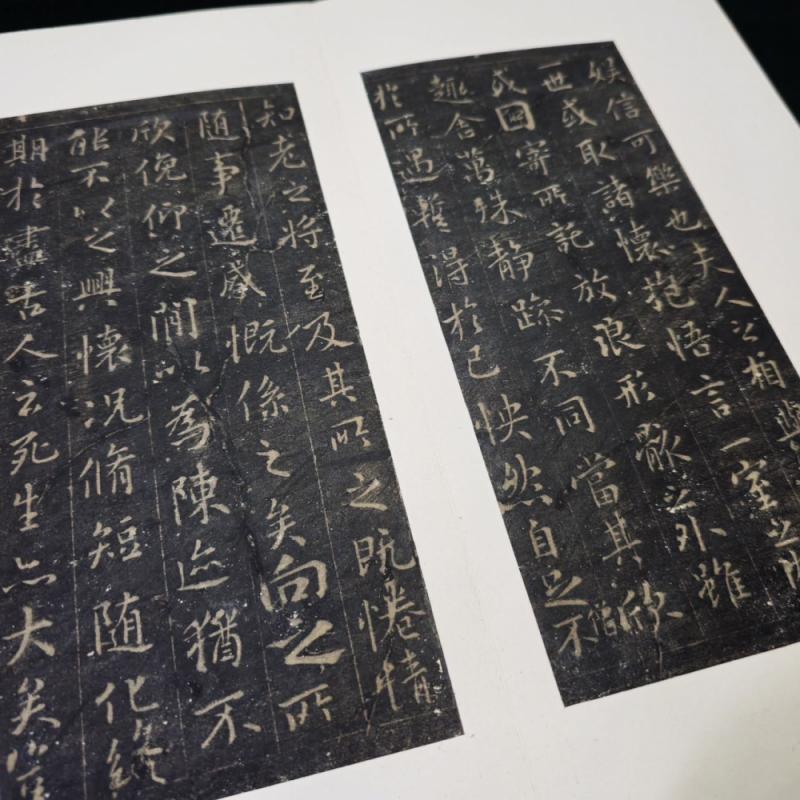 娛信可樂也夫人之相與
一世或取諸懷抱悟言一室之內
或因寄所託放浪形骸之外雖
趣舍萬殊靜躁不同當其欣
於所遇暫得於己怏然自足不
僧
知老之將至及其所之既惓情
随事遷感慨係之矣向之所
欣俛仰之閒以為陳迹猶不
能不以之興懷況脩短随化終
期於盡古人云死生亦大矣豈